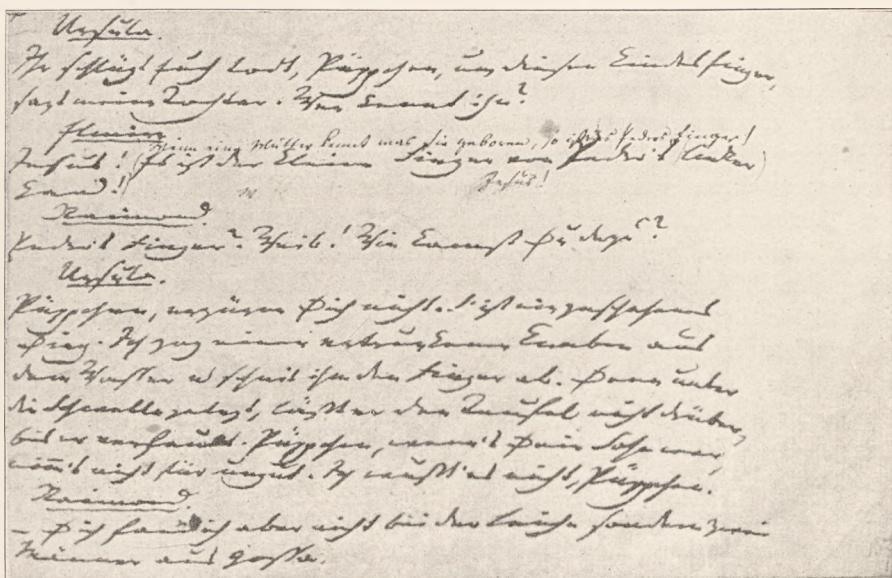 Ursula.
Ihr schlagt Euch todt, Püppchen, um diesen Kindesfinger,
sagt meine Tochter. Wer kennt ihn?
Elmire
Wenn eine Mutter kennt was sie geboren, so ist es Peders Finger!
Jesus! (Es ist der kleine Finger von Peder's linker)
Hand!) Jesus!
Raimond.
Peders Finger? Weib! Wie kamst Du dazu?
Ursula.
Püppchen, erzürne Dich nicht. 's ist ein geschehenes
Ding. Ich zog einen ertrunkenen Knaben aus
dem Wasser u schnit ihm den Finger ab. Denn unter
die Schwelle gelegt, läßt er den Teufel nicht drüber,
bis er verfault. Püppchen, wenn's Dein Sohn war,
nimm's nicht für ungut. Ich wußt' es nicht, Püppchen.
Raimond.
– Dich fand ich aber nicht bei der Leiche sondern zwei
Männer aus Gossa.